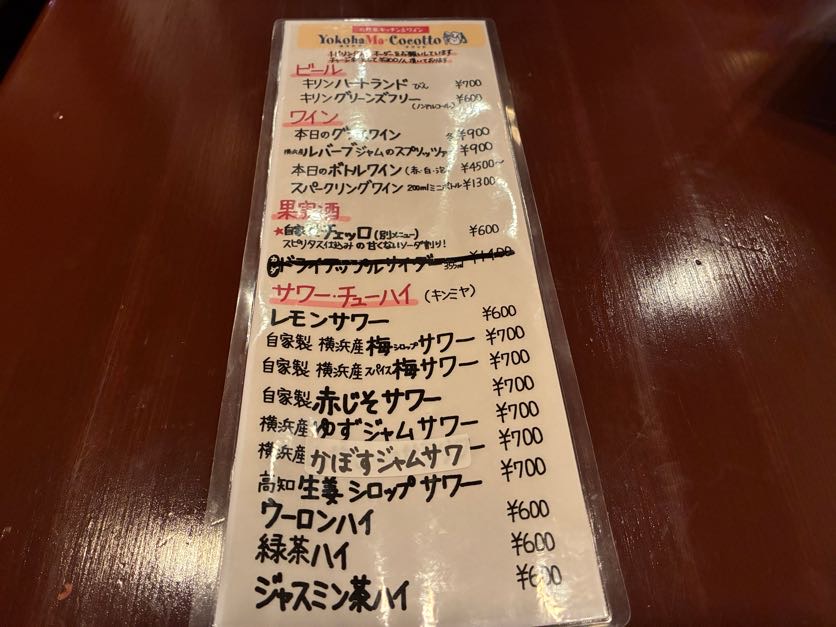 YokohaMa・Cocotto
ビール
キリンハートランド びん ¥700
キリングリーンズフリー ¥600
(ノンアルコール)
ワイン
本日のグラスワイン 各¥900
横浜産ルバーブジャムのスプリッツァー ¥900
本日のボトルワイン (赤・白・泡) ¥4500〜
スパークリングワイン 200mlミニボトル ¥1300
果実酒
★自家製チェッロ(別メニュー) ¥600
スピリタス仕込みの甘くないソーダ割り!
ドライアップルサイダー 355ml ¥1400
サワー・チューハイ (キンミヤ)
レモンサワー ¥600
自家製 横浜産 梅シロップサワー ¥700
自家製 横浜産スパイス梅サワー ¥700
自家製 赤じそサワー ¥700
横浜産 ゆずジャムサワー ¥700
横浜産 かぼすジャムサワー ¥700
高知 生姜シロップサワー ¥700
ウーロンハイ ¥600
緑茶ハイ ¥600
ジャスミン茶ハイ ¥600